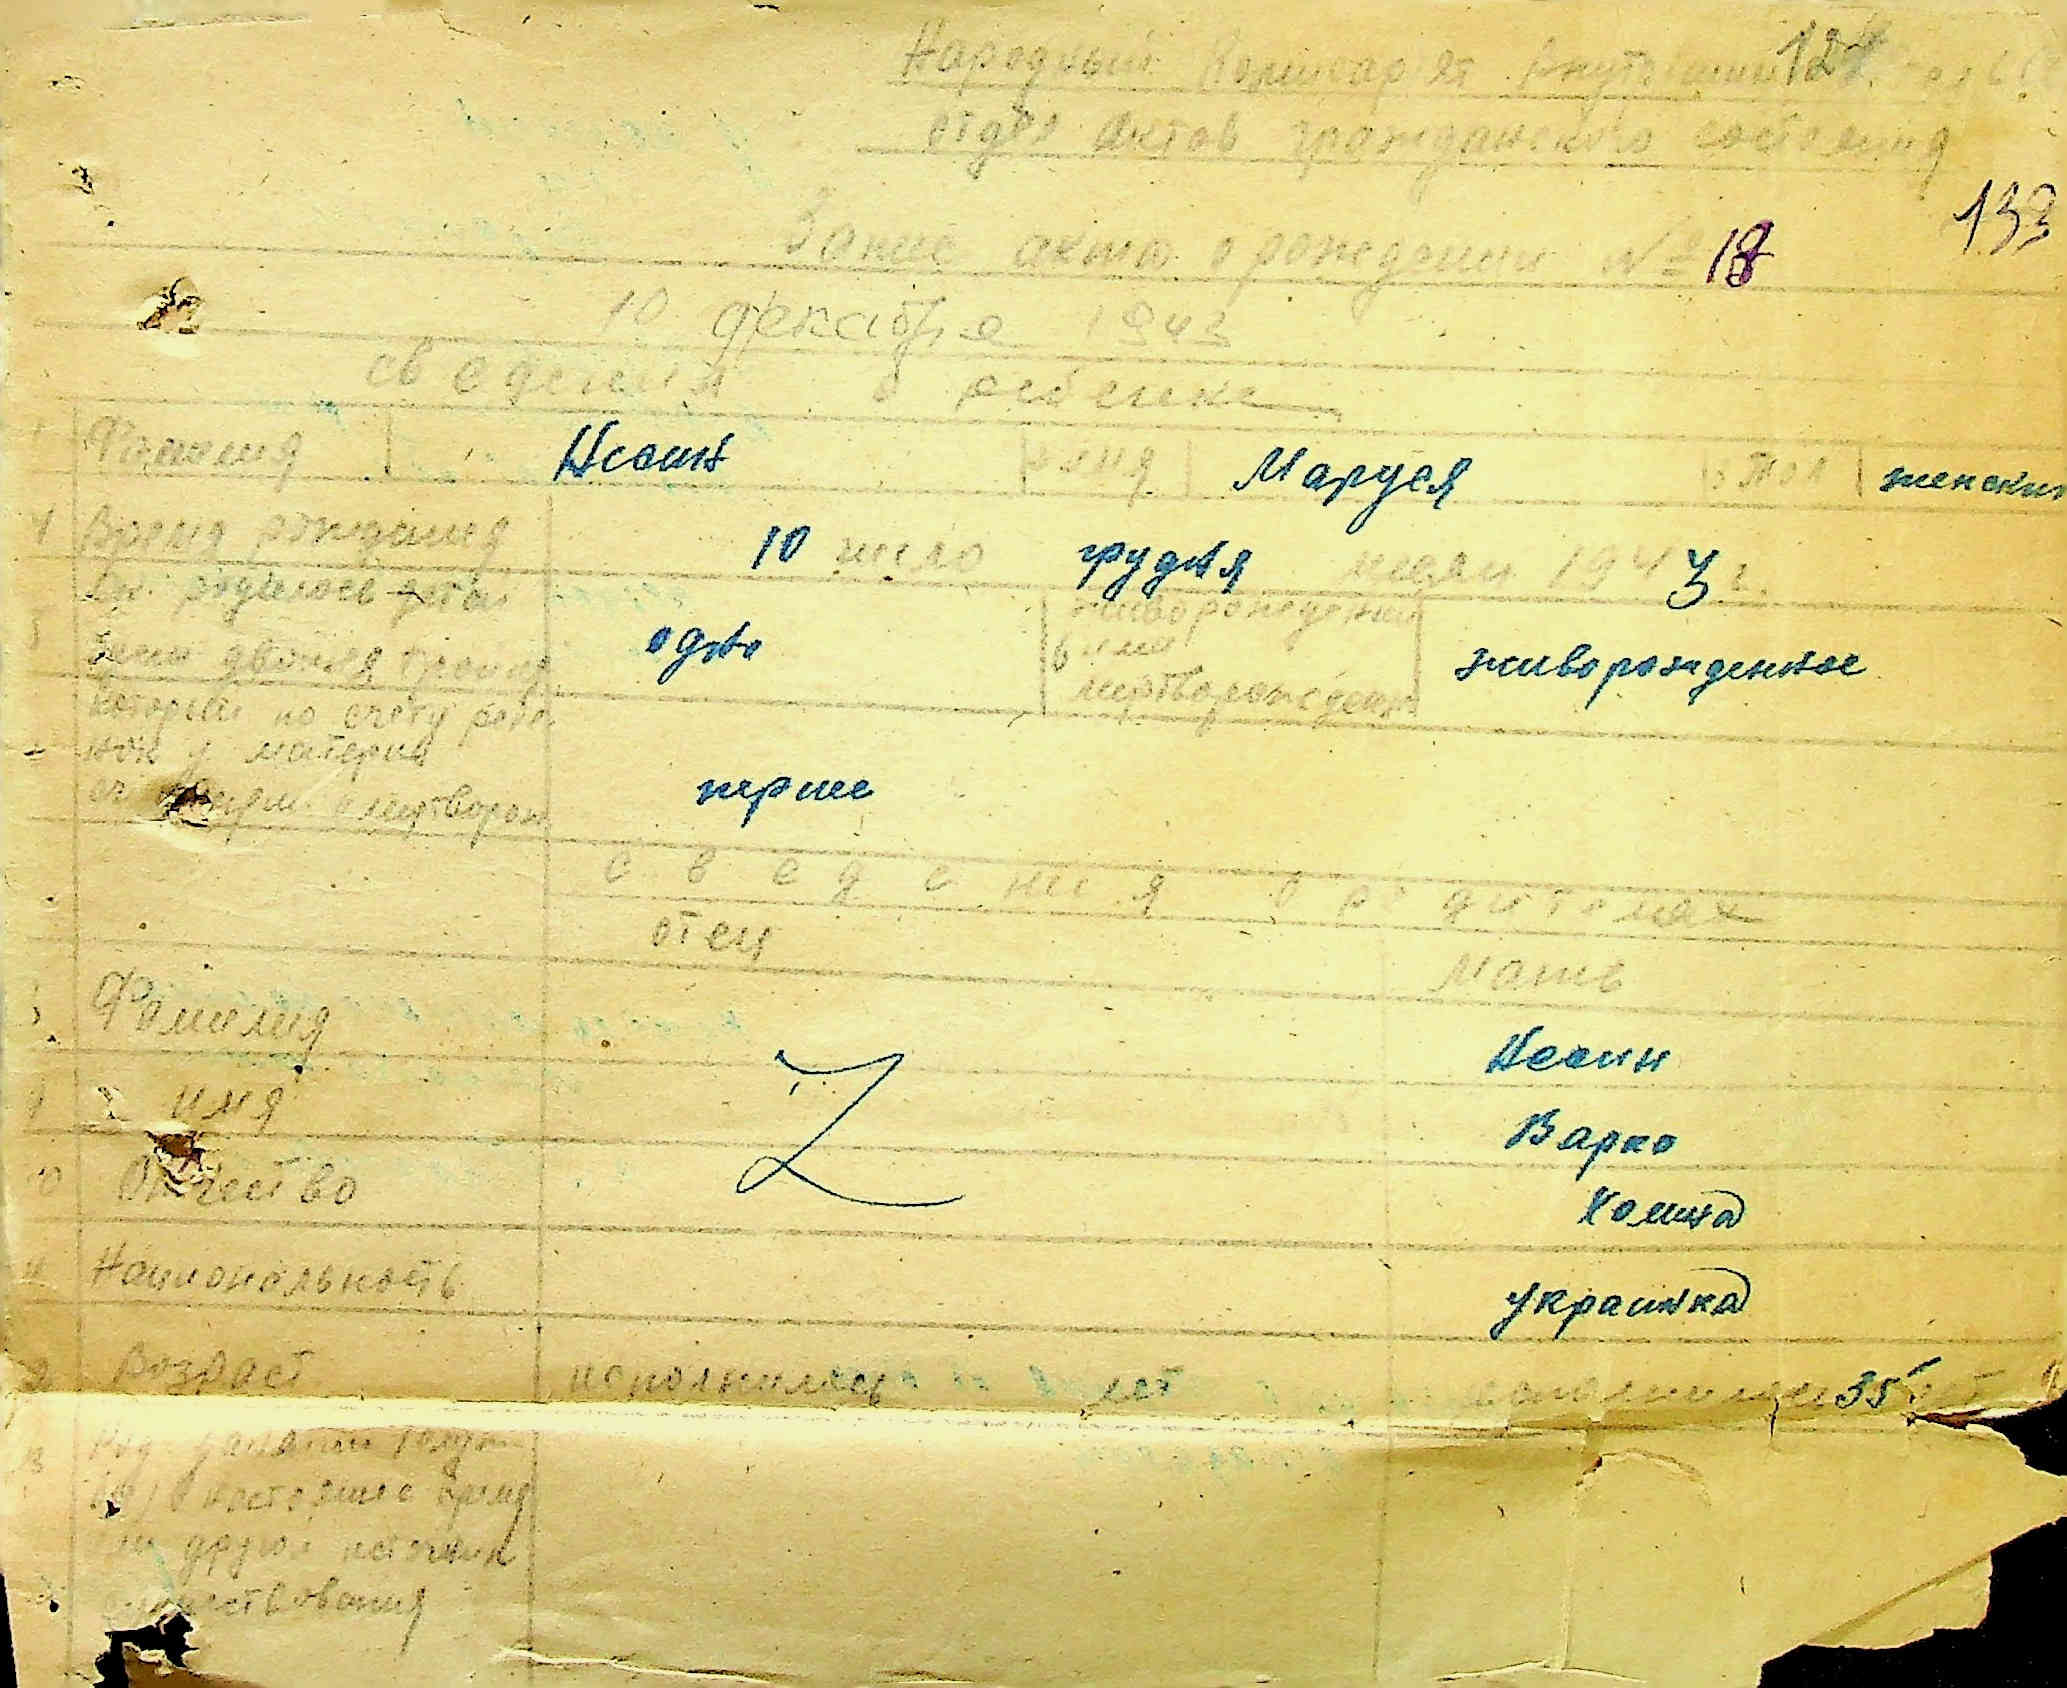 124
Народный Комисариат Внутренних
отдел Актов гражданского состояния
133
Запис акта о рождении № 18
10 декабря 1943
сведения о ребенке
Фамилия Несин имя Маруся Пол женский
4 Время рождения 10 число грудня месяц 1943 г.
родилось детей
5 двойня тройня одно
6 живорожденный
или
мертворожден
живорожденное
который по счету ребе
нок у матери
мертворож
перше
сведения о родителях
отец Мать
Фамилия Несин
имя Варка
10 Отчество Хомина
11 Национальность украинка
Возраст исполнилось лет исполнилось 35
13 Род занятий
настоящее время
или другой источник
существования